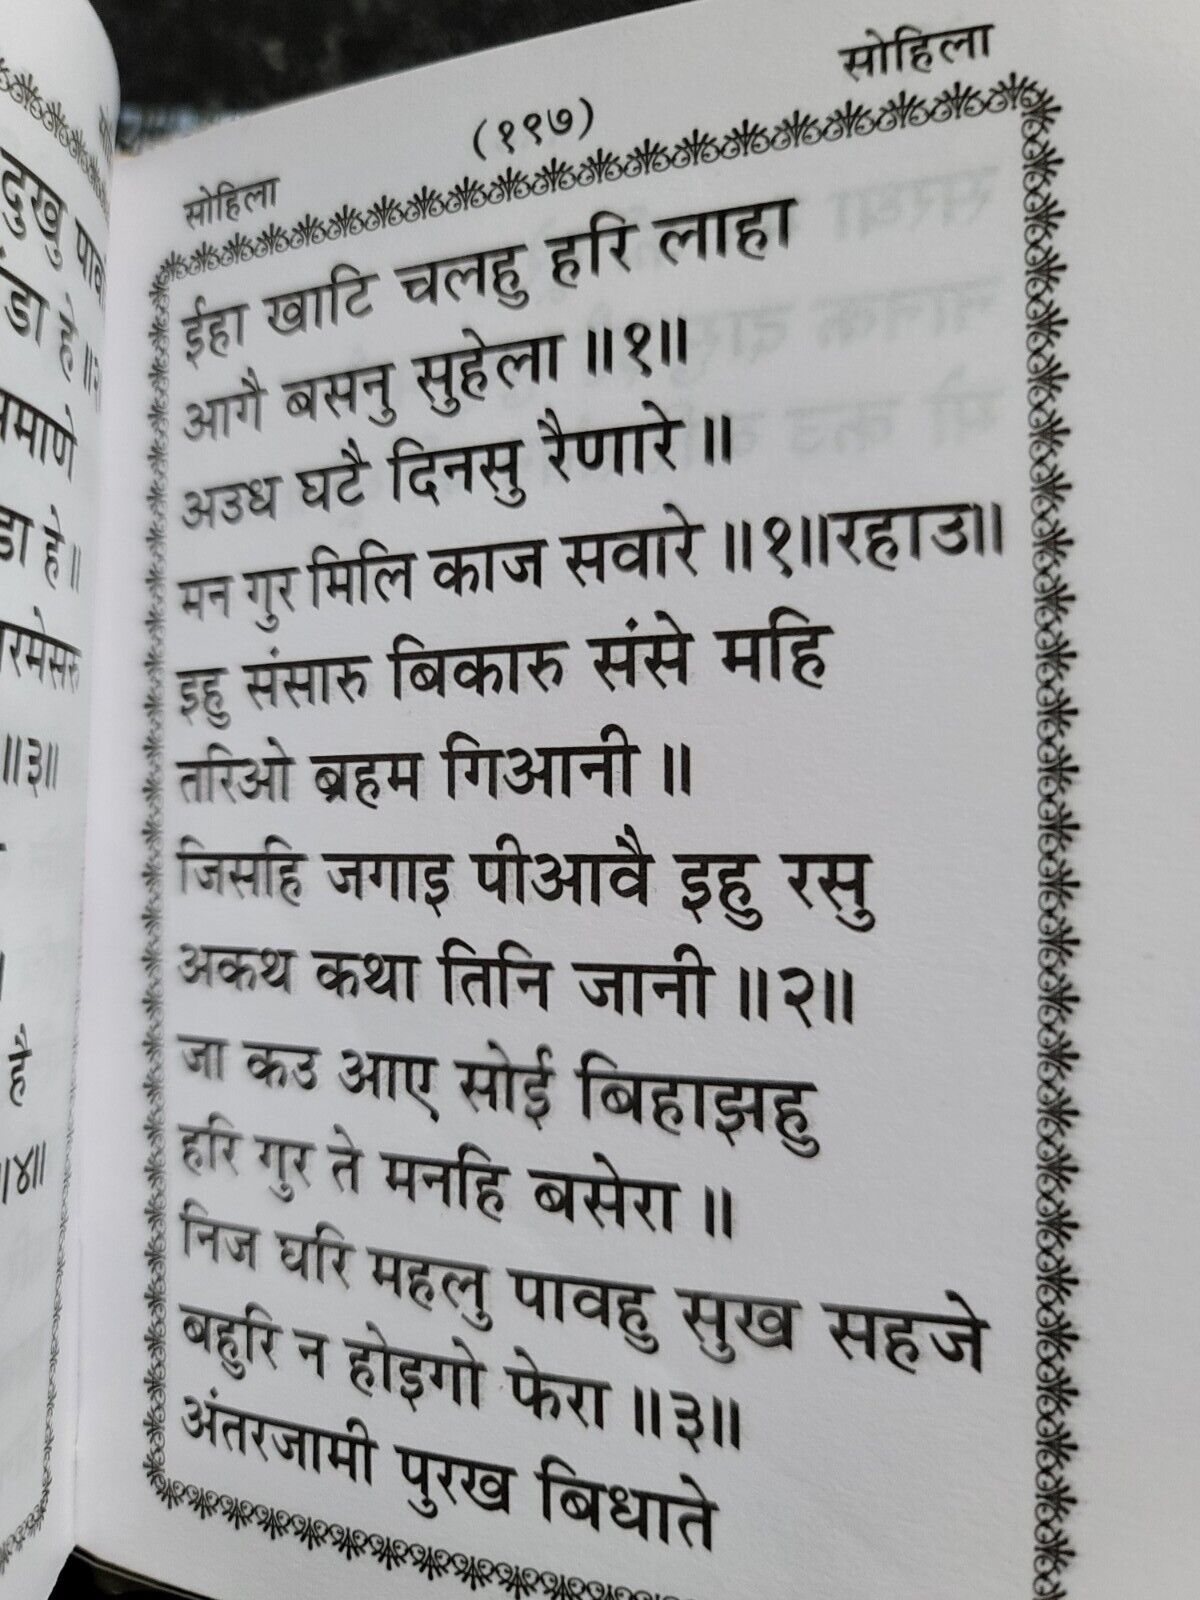 दुखु
डा हे ॥
माणे
डा हे॥
रमेसरु
॥३॥
है
॥४॥
सोहिला
(१९७)
सोहिला
ईहा खाटि चलहु हरि लाहा
आगै बसनु सुहेला ॥१॥
अउध घटै दिनसु रैणारे ॥
मन गुर मिलि काज सवारे ॥१॥रहाउ॥
इहु संसारु बिकारु संसे महि
तरिओ ब्रहम गिआनी ॥
जिसहि जगाइ पीआवै इहु रसु
अकथ कथा तिनि जानी ॥२॥
जा कउ आए सोई बिहाझहु
हरि गुर ते मनहि बसेरा ॥
निज घरि महलु पावहु सुख सहजे
बहुरि न होइगो फेरा ॥३॥
अंतरजामी पुरख बिधाते